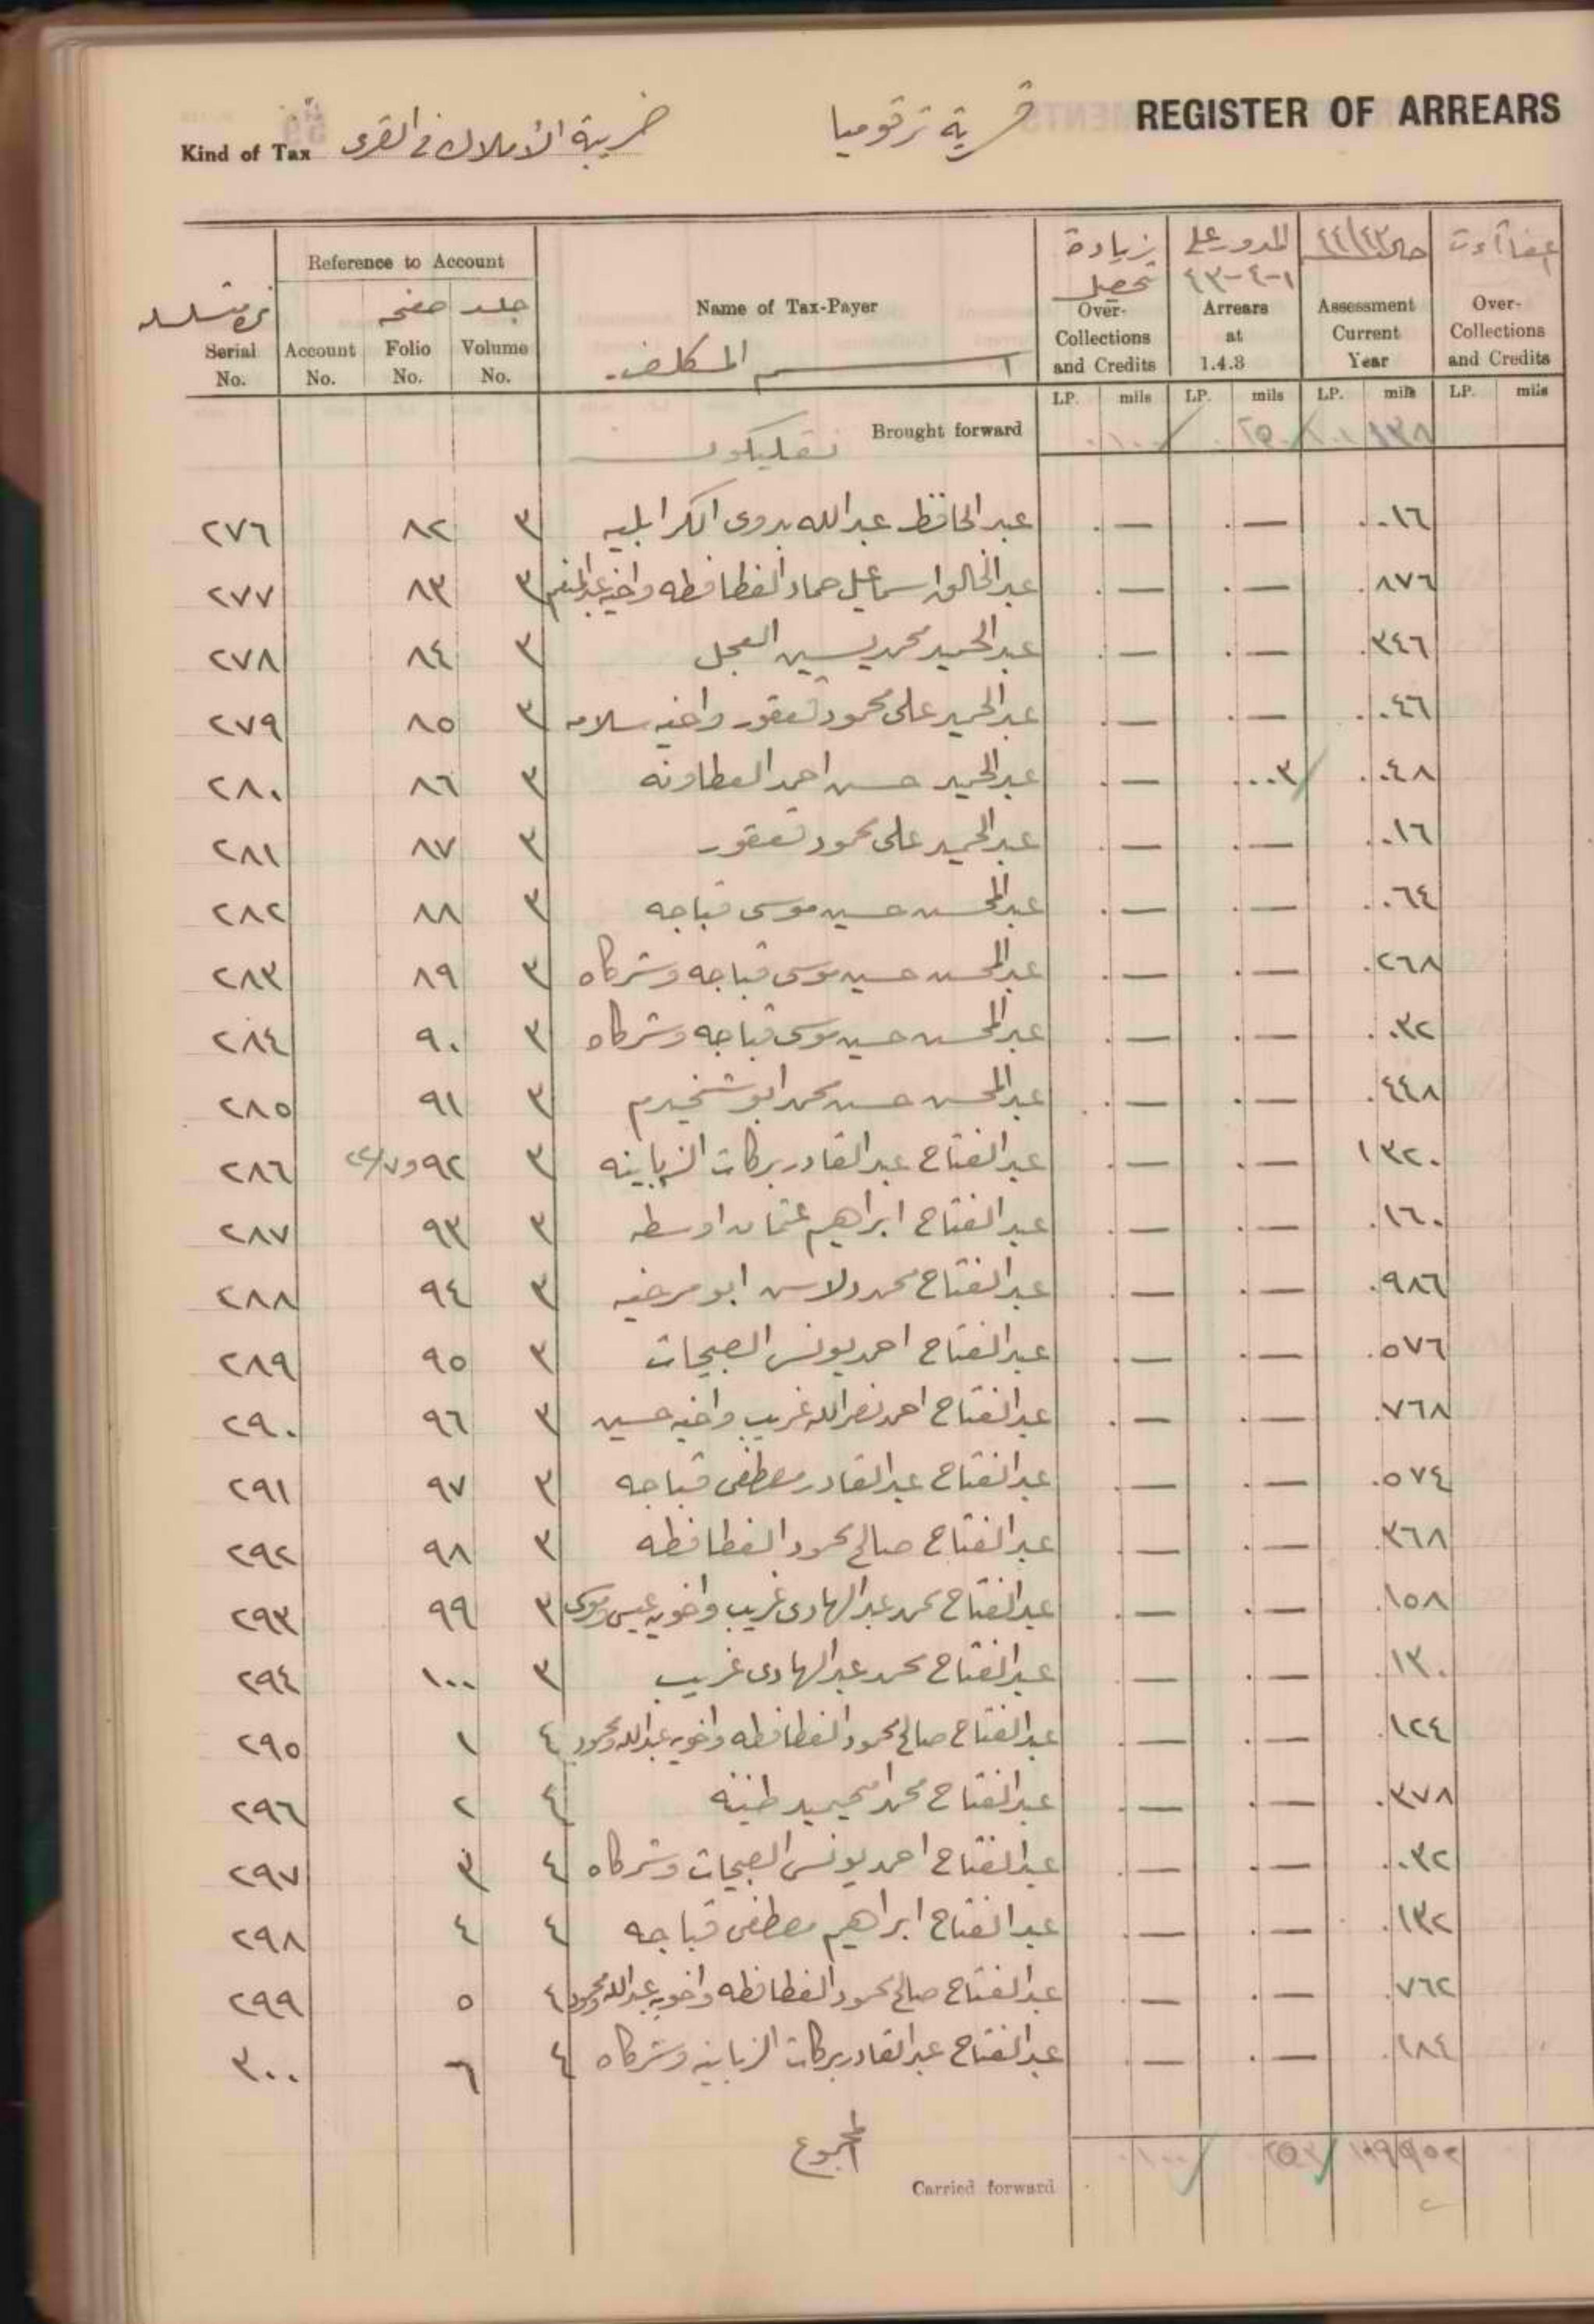 REGISTER OF ARREARS
قرية ترقوميا
Kind of Tax ضريبة الأملاك في القرى
Reference to Account
Serial No. | Account No. | صفحه Folio No. | جلد Volume No. | Name of Tax-Payer اسم المكلف | زيادة تحصيل Over-Collections and Credits | المدور على ١-٤-٤٣ Arrears at 1.4.3 | ٤٤/٤٣ Assessment Current Year | Over-Collections and Credits
LP. mils LP. mils LP. mils LP. mils
Brought forward ١٠٠ ٢٥٠ ١٣٨
٢٧٦ ٨٢ ٣ عبد الحافظ عبد الله بدوى الكرابليه .— .— .٠١٦
٢٧٧ ٨٣ ٣ عبد الخالق اسماعيل حماد الفطافطه واخيه عبد المنعم .— .— .٨٧٦
٢٧٨ ٨٤ ٣ عبد الحميد محمد يسين العجل .— .— .٣٤٦
٢٧٩ ٨٥ ٣ عبد الحميد على محمود قعقور واخيه سلامه .— .— .٠٤٦
٢٨٠ ٨٦ ٣ عبد الحميد حسن احمد العطاونه .— .٠٠٣ .٠٤٨
٢٨١ ٨٧ ٣ عبد الحميد على محمود قعقور .— .— .٠١٦
٢٨٢ ٨٨ ٣ عبد المحسن حسين موسى قباجه .— .— .٠٦٤
٢٨٣ ٨٩ ٣ عبد المحسن حسين موسى قباجه وشركاه .— .— .٢٦٨
٢٨٤ ٩٠ ٣ عبد المحسن حسين موسى قباجه وشركاه .— .— .٠٣٢
٢٨٥ ٩١ ٣ عبد المحسن حسن محمد ابو شخيدم .— .— .٤٤٨
٢٨٦ ٩٢ ٣ عبد الفتاح عبد القادر بركات الزباينه .— .— ١ ٣٢٠
٢٨٧ ٩٣ ٣ عبد الفتاح ابراهيم عثمان اوسطه .— .— .١٦٠
٢٨٨ ٩٤ ٣ عبد الفتاح محمد ابو مرخيه .— .— .٩٨٦
٢٨٩ ٩٥ ٣ عبد الفتاح احمد يونس الصبحات .— .— .٥٧٦
٢٩٠ ٩٦ ٣ عبد الفتاح احمد نصر الله غريب واخيه حسين .— .— .٧٦٨
٢٩١ ٩٧ ٣ عبد الفتاح عبد القادر مصطفى قباجه .— .— .٥٧٤
٢٩٢ ٩٨ ٣ عبد الفتاح صالح محمود الفطافطه .— .— .٣٦٨
٢٩٣ ٩٩ ٣ عبد الفتاح محمد عبد الهادى غريب واخويه عيسى وموسى .— .— .١٥٨
٢٩٤ ١٠٠ ٣ عبد الفتاح محمد عبد الهادى غريب .— .— .١٣٠
٢٩٥ ١ ٤ عبد الفتاح صالح محمود الفطافطه واخويه عبد الله ومحمود .— .— .١٢٤
٢٩٦ ٢ ٤ عبد الفتاح محمد امحيميد طنينه .— .— .٣٧٨
٢٩٧ ٣ ٤ عبد الفتاح احمد يونس الصبحات وشركاه .— .— .٠٣٢
٢٩٨ ٤ ٤ عبد الفتاح ابراهيم مصطفى قباجه .— .— .١٣٢
٢٩٩ ٥ ٤ عبد الفتاح صالح محمود الفطافطه واخويه عبد الله ومحمود .— .— .٧٦٢
٣٠٠ ٦ ٤ عبد الفتاح عبد القادر بركات الزباينه وشركاه .— .— .٢٨٤
المجموع
Carried forward ١٠٠ ٢٥٣